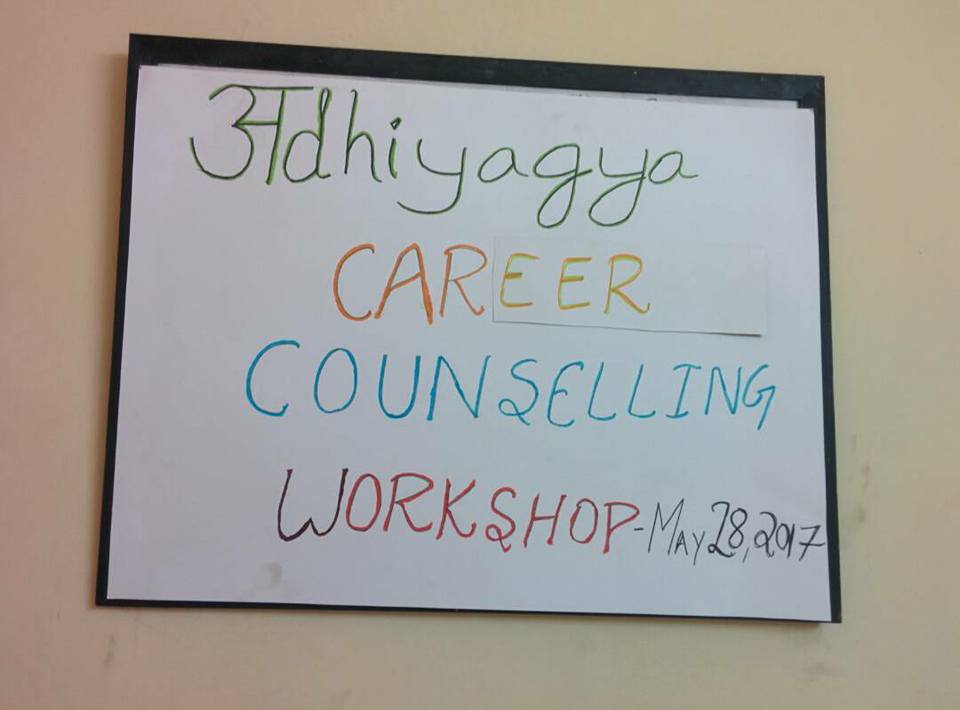 अdhiyagya
CAREER
COUNSELLING
WORKSHOP-MAY 28, 2017